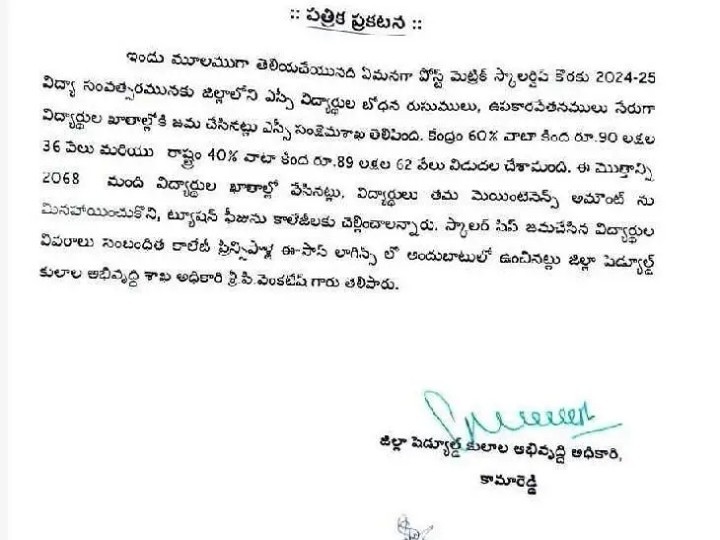 :: పత్రిక ప్రకటన ::
ఇందు మూలముగా తెలియచేయునది ఏమనగా పోస్ట్ మెట్రిక్ స్కాలర్షిప్ కొరకు 2024-25
విద్యా సంవత్సరమునకు జిల్లాలోని ఎస్సీ విద్యార్థుల బోధన రుసుములు, ఉపకారవేతనములు నేరుగా
విద్యార్థుల ఖాతాల్లోకి జమ చేసినట్లు ఎస్సీ సంక్షేమశాఖ తెలిపింది. కేంద్రం 60% వాటా కింద రూ.90 లక్షల
36 వేలు మరియు రాష్ట్రం 40% వాటా కింద రూ.89 లక్షల 62 వేలు విడుదల చేశామంది. ఈ మొత్తాన్ని
2068 మంది విద్యార్థుల ఖాతాల్లో వేసినట్లు, విద్యార్థులు తమ మెయింటెనెన్స్ అమౌంట్ ను
మినహాయించుకొని, ట్యూషన్ ఫీజును కాలేజీలకు చెల్లించాలన్నారు. స్కాలర్ షిప్ జమచేసిన విద్యార్థుల
వివరాలు సంబంధిత కాలేజీ ప్రిన్సిపాళ్ల ఈ-పాస్ లాగిన్స్ లో అందుబాటులో ఉంచినట్లు జిల్లా షెడ్యూల్డ్
కులాల అభివృద్ధి శాఖ అధికారి శ్రీ.పి.వెంకటేష్ గారు తెలిపారు.
జిల్లా షెడ్యూల్డ్ కులాల అభివృద్ధి అధికారి,
కామారెడ్డి